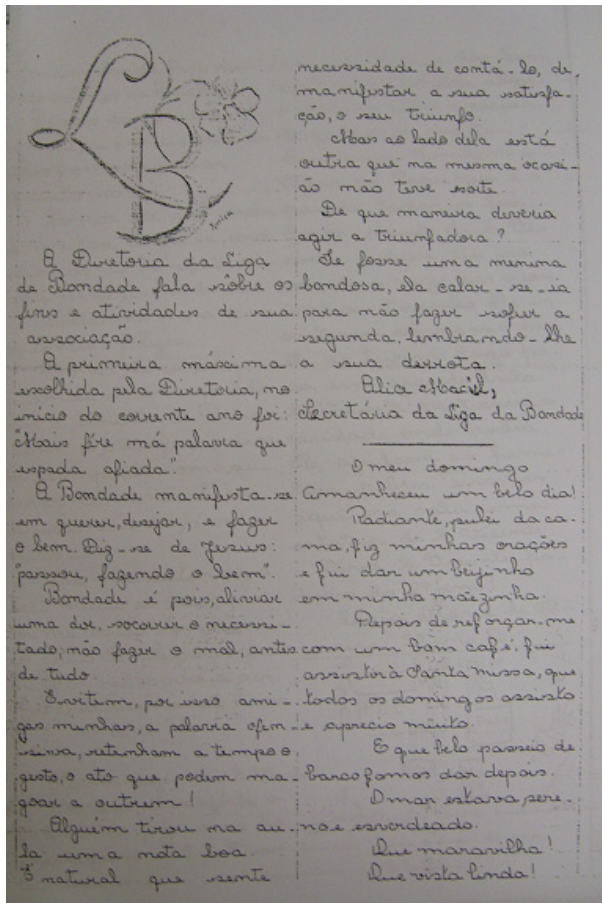 LB
A Diretoria da Liga
de Bondade fala sôbre os
fins e atividades de sua
associação.
A primeira máxima
escolhida pela Diretoria, no
início do corrente ano foi:
"Mais fire má palavra que
espada afiada".
A Bondade manifesta-se
em querer, desejar, e fazer
o bem. Diz-se de Jesus:
"passou, fazendo o bem".
Bondade é pois, aliviar
uma dor, socorrer o necessi-
tado, não fazer o mal, antes
de tudo
Evitem, por isso ami-
gas minhas, a palavra ofen-
siva, retenham a tempo o
gesto, o ato que podem ma-
goar a outrem!
Alguém tirou na au-
la uma nota boa.
É natural que sente
necessidade de contá-lo, de
manifestar a sua satisfa-
ção, o seu triunfo.
Mas ao lado dela está
outra que na mesma ocasi-
ão não teve sorte.
De que maneira deveria
agir a triunfadora?
Se fosse uma menina
bondosa, ela calar-se-ia
para não fazer sofrer a
segunda, lembrando-lhe
a sua derrota.
Alice Maciel,
Secretária da Liga da Bondade
O meu domingo
Amanheceu um belo dia!
Radiante, pulei da ca-
ma, fiz minhas orações
e fui dar um beijinho
em minha mãezinha.
Depois de reforçar-me
com um bom café, fui
assistir à Santa Missa, que
todos os domingos assisto
e aprecio muito.
E que belo passeio de
barco fomos dar depois.
O mar estava, sere-
no e esverdeado.
Que maravilha!
Que vista linda!